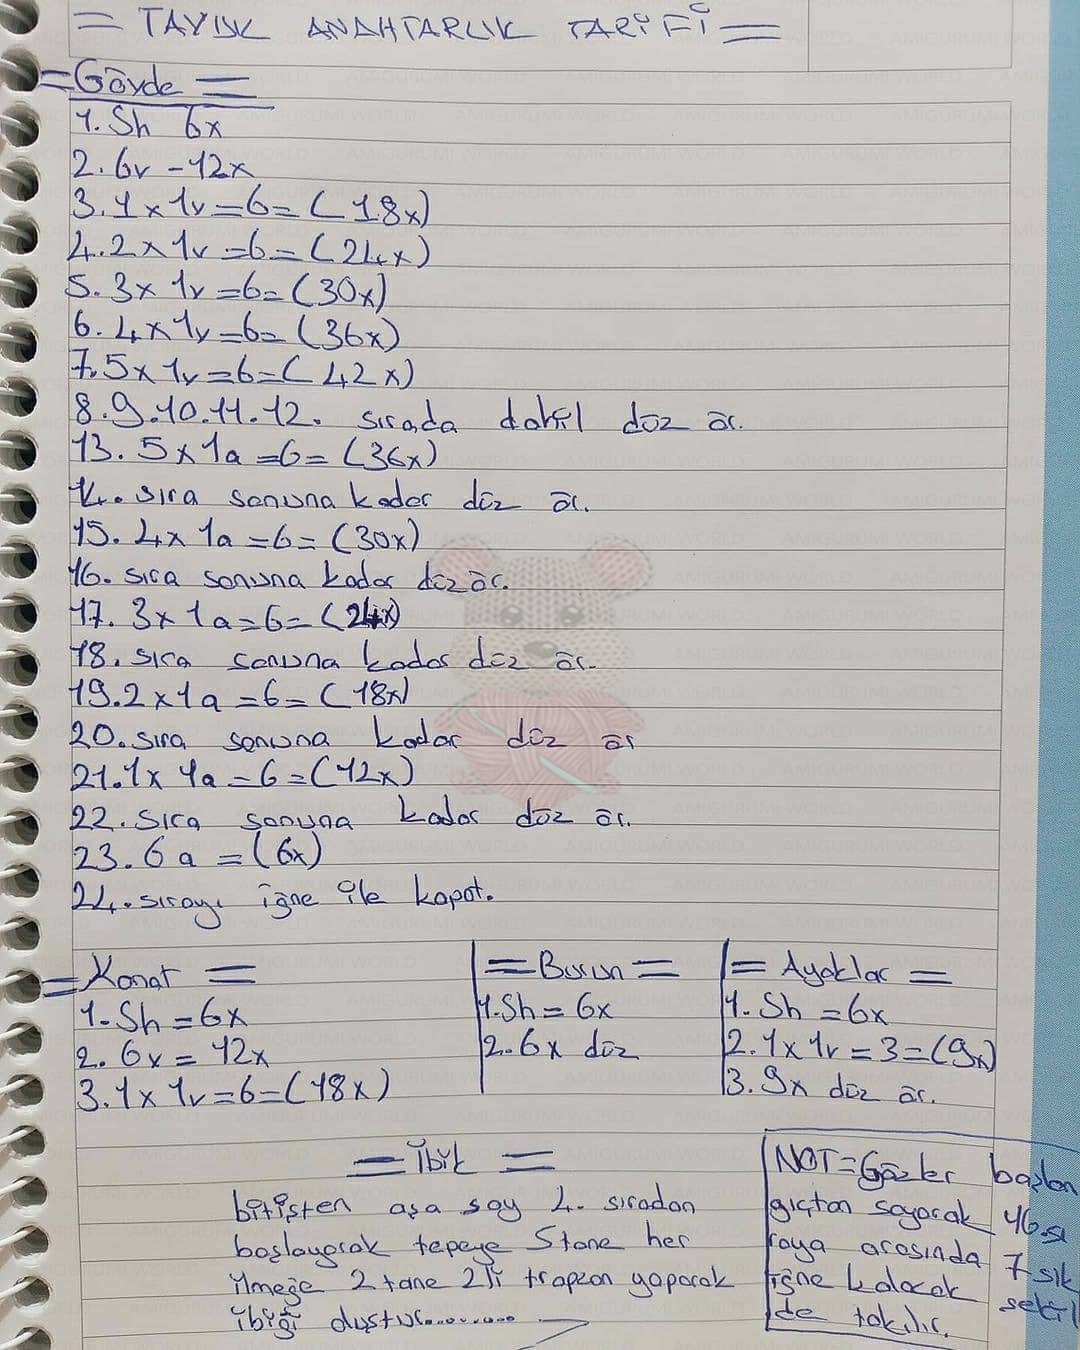 = TAVUK ANAHTARLIK TARİFİ =
= Gövde =
1. Sh 6x
2. 6v - 12x
3. 1x 1v = 6 = (18x)
4. 2x 1v = 6 = (24x)
5. 3x 1v = 6 = (30x)
6. 4x 1v = 6 = (36x)
7. 5x 1v = 6 = (42x)
8.9.10.11.12. sırada dahil düz ör.
13. 5x 1a = 6 = (36x)
14. sıra sonuna kadar düz ör.
15. 4x 1a = 6 = (30x)
16. sıra sonuna kadar düz ör.
17. 3x 1a = 6 = (24x)
18. sıra sonuna kadar düz ör.
19. 2x 1a = 6 = (18x)
20. sıra sonuna kadar düz ör
21. 1x 1a = 6 = (12x)
22. sıra sonuna kadar düz ör.
23. 6a = (6x)
24. sırayı iğne ile kapat.
= Kanat =
1. Sh = 6x
2. 6v = 12x
3. 1x 1v = 6 = (18x)
= Burun =
1. Sh = 6x
2. 6x düz
= Ayaklar =
1. Sh = 6x
2. 1x 1v = 3 = (9x)
3. 9x düz ör.
= İbik =
bitişten aşa say 4. sıradan
başlayarak tepeye 5 tane her
ilmeğe 2 tane 2li trapzan yaparak
ibiği oluştur.........
NOT = Gözler başlan
gıçtan sayarak 16.sı
raya arasında 7 sık
iğne kalacak şekil
de takılır.
AMIGURUMI WORLD